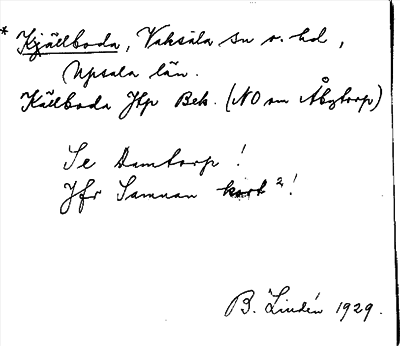 * Kjällboda, Vaksala sn o. hd,
Upsala län.
Källboda Jfp Bek. (NO om Åbytorp)
Se Damtorp!
Jfr Samnan kort 2!
B. Lindén 1929.